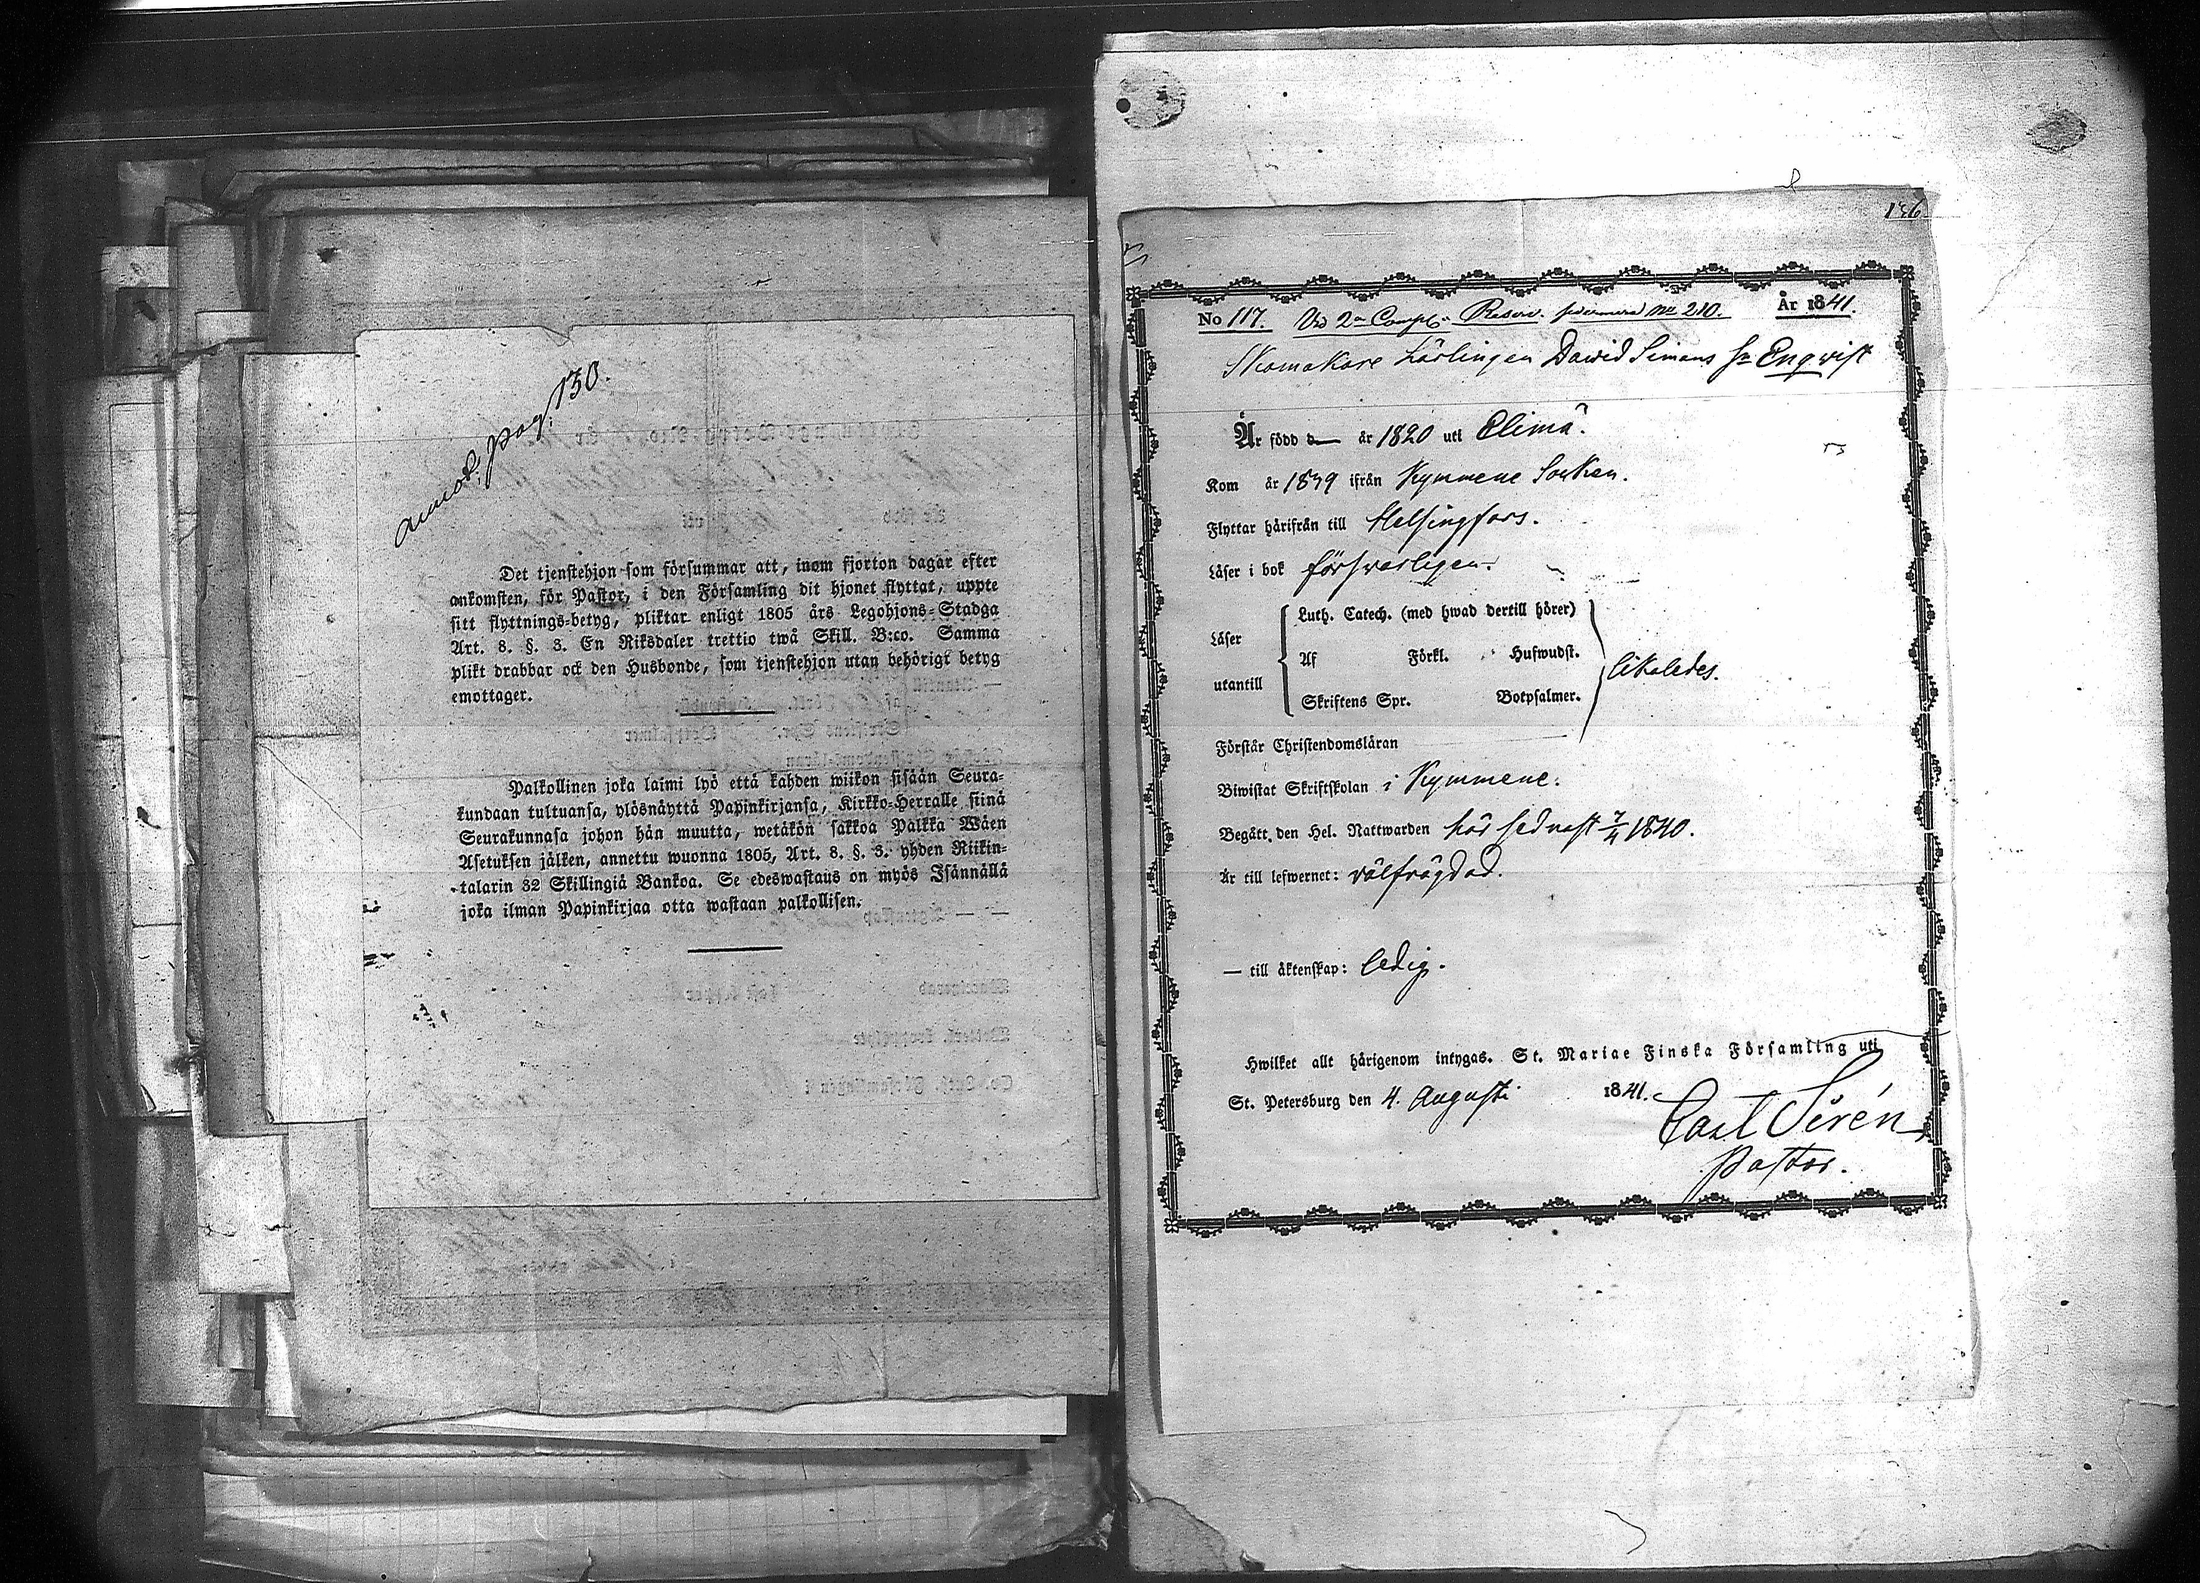 annot. pag. 130.
Det tjenstehjon som försummar att, inom fjorton dagar efter
ankomsten, för Pastor, i den Församling dit hjonet flyttat, uppte
sitt flyttnings-betyg, pliktar enligt 1805 års Legohjons-Stadga
Art. 8. §. 3. En Riksdaler trettio twå Skill. B:co. Samma
plikt drabbar ock den Husbonde, som tjenstehjon utan behörigt betyg
emottager.
Palkollinen joka laimi lyö että kahden wiikon sisään Seura-
kundaan tultuansa, ylösnäyttä Papinkirjansa, Kirkko-Herralle siinä
Seurakunnasa johon hän muutta, wetäkön sakkoa Palkka Wäen
Asetuksen jälken, annettu wuonna 1805, Art. 8. §. 3. yhden Riikin-
talarin 32 Skillingiä Bankoa. Se edeswastaus on myös Isännällä
joka ilman Papinkirjaa otta wastaan palkollisen.
136
No 117. Vid 2a Comp. Reserv. No 210. År 1841.
Skomakare Lärlingen Dawid Simons Sn Enqvist
Är född år 1820 uti Elimä.
Kom år 1839 ifrån Kymmene Socken.
Flyttar härifrån till Helsingfors.
Läser i bok försvarligen.
Luth. Catech. (med hwad dertill hörer)
Läser
Af Förkl. Hufwudst.
likaledes.
utantill
Skriftens Spr. Botpsalmer.
Förstår Christendomsläran
Biwistat Skriftskolan i Kymmene.
Begått den Hel. Nattwarden här sednast 7/4 1840.
Är till lefwernet: välfrägdad.
— till äktenskap: ledig.
Hwilket allt härigenom intygas. St. Mariae Finska Församling uti
St. Petersburg den 4. Augusti 1841.
Carl Sirén
Pastor.